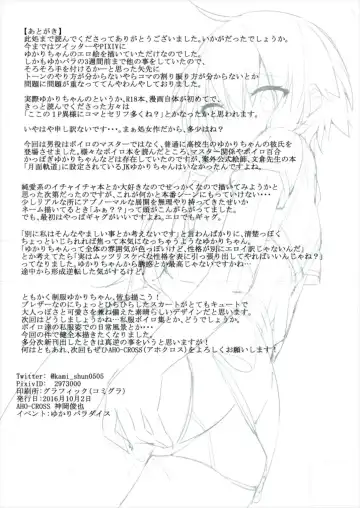 【あとがき】
此処まで読んでくださってありがとうございました。いかがだったでしょうか。
今まではツイッターやPIXIVに
ゆかりちゃんのエロ絵を描いていただけなのでした。
しかもゆかパラの3週間前まで他の事をしていたので、
そろそろ手を付けるかーと思った矢先に
トーンのやり方が分からないやらコマの割り振り方が分からないとか
問題に問題が重なってててんやわんやしておりました。
実際ゆかりちゃんのというか、R18本、漫画自体が初めてで、
きっと読んでくださった方々は
「ここの1P異様にコマとセリフ多くね?」とかなったかと思われます。
いやはや申し訳ないです・・・。まぁ処女作だから、多少はね?
今回は男役はボイロのマスターではなく、普通に高校生のゆかりちゃんの彼氏を
登場させました。様々なボイロ本を読んだところ、マスター関係やボイロ百合
かっぱぎゆかりちゃんなどは存在していたのですが、案外公式絵師、文倉先生の本
「月面軌道」に設定されているJKゆかりちゃんはいなかったんですよね。
純愛系のイチャイチャ本とか大好きなのでせっかくなので描いてみようかと
思った次第だったのですが、これが何かと本番シーンにもっていけない・・・
少しリアルな所にアブノーマルな展開を無理やり持ってきたせいか
ネーム描いてるとき「ふぁ??」って頭がこんがらがってました。
でも、最初はやっぱギャグがいいですよね。エロでもギャグ。
「別に私はそんなやましい事とか考えないです」と言わんばかりに、清楚っぽく
ちょっといじられれば焦って本気になっちゃうようなゆかりちゃん。
「ゆかりちゃんって全体の雰囲気が色っぽいけど、性格が別にエロイ訳じゃないんだ」
とか考えてたら「実はムッツリスケベな性格を表に引っ張り出してやればいいんじゃね?」
ってなりました。ゆかりちゃんから誘惑とか最高じゃないですかね・・・
途中から形成逆転した気がするけど。
ともかく制服ゆかりちゃん、皆も描こう!
ブレザーなのにところどころひらひらしたスカートがとてもキュートで
大人っぽさと可愛さを兼ね備えた素晴らしいデザインだと思います。
次回はどうしましょうかね・・・私服ボイロ集とか、どうでしょうか。
ボイロ達の私服姿での日常風景とか・・・
今回の件で健全本描きたくなりました。
多分次新刊出したときは真逆の事をいうと思いますが!
何はともあれ、次回もぜひAHO-CROSS(アホクロス)をよろしくお願いします!
Twitter: @kami_shun0505
PixivID: 2973000
印刷所:グラフィック(コミグラ)
発行日:2016月10月2日
AHO-CROSS 神岡俊也
イベント:ゆかりパラダイス